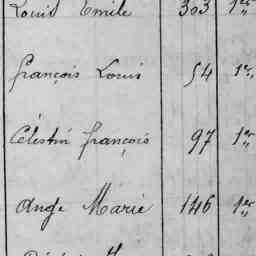 Louis Emile 303 1er
françois Louis 54 1er
Célestin françois 97 1er
Ange Marie 146 1er